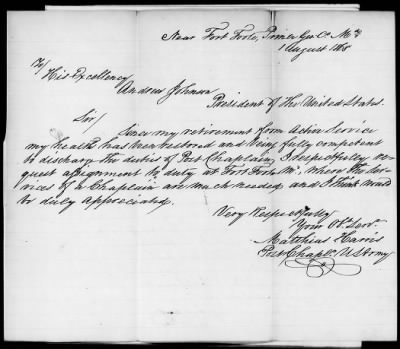 Near Fort Foote, Prince Geo. Co. Md.
1 August 186
To/
His Excellency
Andrew Johnson
President of the United States.
Sir/ Since my retirement from Active Service
my health has been restored and being fully competent
to discharge the duties of Post Chaplain, I respectfully re-
quest assignment to duty at Fort Foote Md. where the ser-
vices of a Chaplain are much needed and I think would
be duly appreciated.
Very Respectfully
Your Ob. Serv.
Matthias Harris
Post Chapl. U S Army